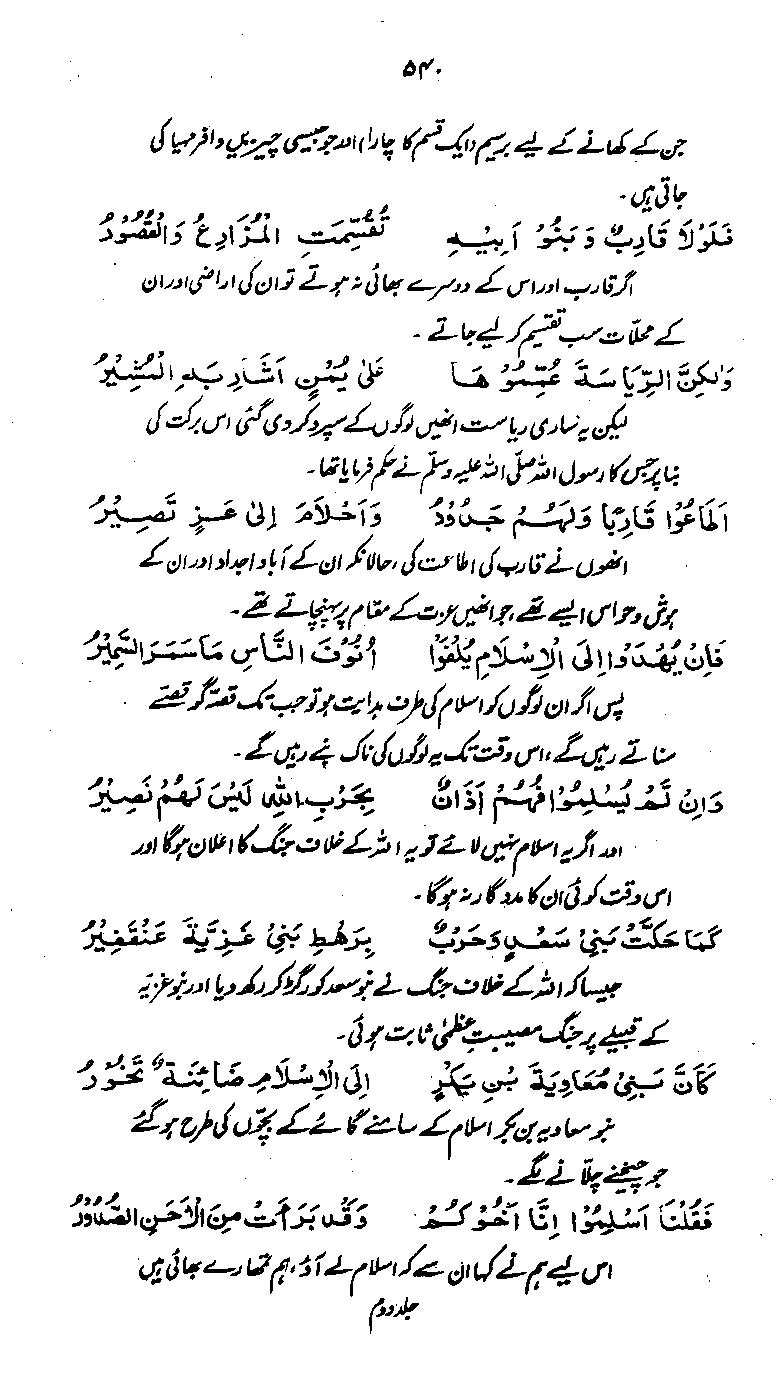 ۵۴۰
جن کے کھانے کے لیے برسیم (ایک قسم کا چارا) اور جو جیسی چیزیں وافر مہیا کی
جاتی ہیں۔
فَلَوْلَا قَارِبٌ وَبَنُوْ اَبِيْهِ تُقُسِّمَتِ الْمُزَارِعُ وَالْقُصُوْدُ
اگر قارب اور اس کے دوسرے بھائی نہ ہوتے تو ان کی اراضی اور ان
کے محلّات سب تقسیم کر لیے جاتے۔
وَلٰكِنَّ الرِّيَاسَةَ عُمِّمُوْهَا عَلٰى يُمْنٍ اَشَارَ بِهِ الْمُشِيْرُ
لیکن یہ ساری ریاست انھیں لوگوں کے سپرد کر دی گئی اس برکت کی
بنا پر جس کا رسول اللہ صلّی اللہ علیہ وسلّم نے حکم فرمایا تھا۔
اَطَاعُوْا قَارِبًا وَلَهُمْ جُدُوْدٌ وَاَحْلَامٌ اِلٰى عِزٍّ تَصِيْرُ
انھوں نے قارب کی اطاعت کی، حالانکہ ان کے آباو اجداد اور ان کے
ہوش و حواس ایسے تھے، جو انھیں عزت کے مقام پر پہنچاتے تھے۔
فَاِنْ يُهْدَوْا اِلَى الْاِسْلَامِ يُلْفَوْا اُنُوْفَ النَّاسِ مَا سَمَرَ السَّمِيْرُ
پس اگر ان لوگوں کو اسلام کی طرف ہدایت ہو تو جب تک قصّہ گو قصّے
سناتے رہیں گے، اس وقت تک یہ لوگوں کی ناک بنے رہیں گے۔
وَاِنْ لَّمْ يُسْلِمُوْا فَهُمْ اَذَانٌ بِحَرْبِ اللهِ لَيْسَ لَهُمْ نَصِيْرُ
اور اگر یہ اسلام نہیں لائے تو یہ اللہ کے خلاف جنگ کا اعلان ہوگا اور
اس وقت کوئی ان کا مددگار نہ ہوگا۔
كَمَا حَكَّتْ بَنِيْ سَعْدٍ وَحَرْبٌ بِرَهْطِ بَنِيْ غَزِيَّةَ عَنْقَفِيْرُ
جیسا کہ اللہ کے خلاف جنگ نے بنو سعد کو رگڑ کر رکھ دیا اور بنو غزیہ
کے قبیلے پر جنگ مصیبتِ عظمٰی ثابت ہوئی۔
كَاَنَّ بَنِيْ مُعَاوِيَةَ بْنِ بَكْرٍ اِلَى الْاِسْلَامِ ضَائِنَةٌ تَخُوْرُ
بنو معاویہ بن بکر اسلام کے سامنے گائے کے بچّوں کی طرح ہو گئے
جو چیخنے چلّانے لگے۔
فَقُلْنَا اَسْلِمُوْا اِنَّا اَخُوْكُمْ وَقَدْ بَرَأَتْ مِنَ الْاَحَنِ الصُّدُوْرُ
اس لیے ہم نے کہا ان سے کہ اسلام لے آؤ، ہم تمھارے بھائی ہیں
جلد دوم